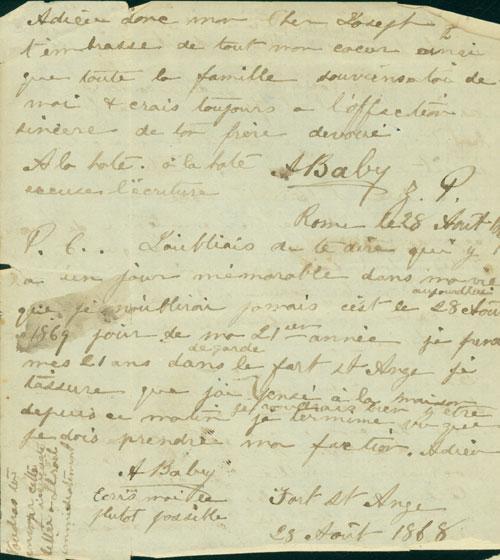 Adieu donc mon Cher Joseph Je
t'embrasse de tout mon coeur ainsi
que toute la famille souviens toi de
moi & crois toujours a l'affection
sincère de ton frère devoué.
A la hate. à la haté
excuses l'écriture
A Baby
Z. P.
Rome le 28 Août
P. S.. J'oubliais de te dire qu'il y
a un jour mémorable dans ma vie
que je n'oublirai jamais c'est le aujourd'hui 28 Aout
1869 jour de ma 21ième année je prend
mes 21 ans de garde dans le fort st Ange je
t'assure que j'ai pensé à la maison
depuis ce matin je voudrais bien y être
je termine vu que
je dois prendre ma faction. Adieu
A Baby
Ecris moi le
plutot possible
Fort St Ange
28 Août 1868
cette
letter
immediatement